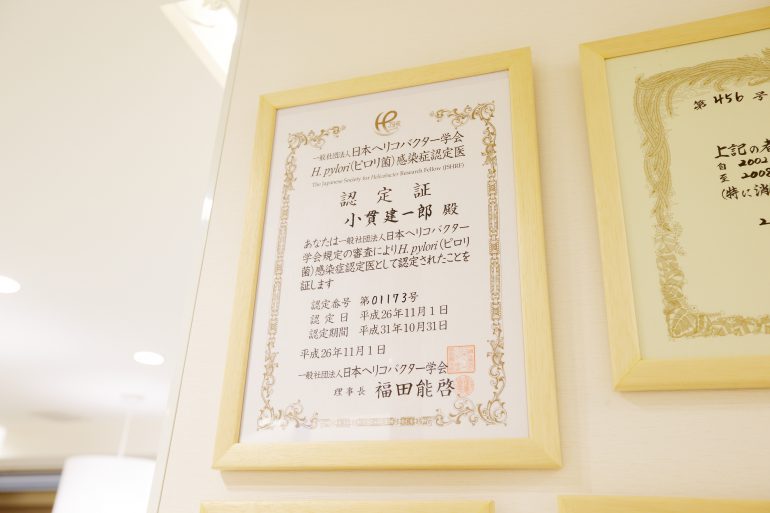 一般社団法人日本ヘリコバクター学会
H. pylori(ピロリ菌)感染症認定医
The Japanese Society for Helicobacter Research Fellow (JSHRF)
認定証
小貫建一郎 殿
あなたは一般社団法人日本ヘリコバクター
学会規定の審査によりH. pylori(ピロリ
菌)感染症認定医として認定されたことを
証します
認定番号 第01173号
認定日 平成26年11月1日
認定期間 平成31年10月31日
平成26年11月1日
一般社団法人日本ヘリコバクター学会
理事長 福田能啓
第456号
上記の者
自 2002
至 2008
(特に消